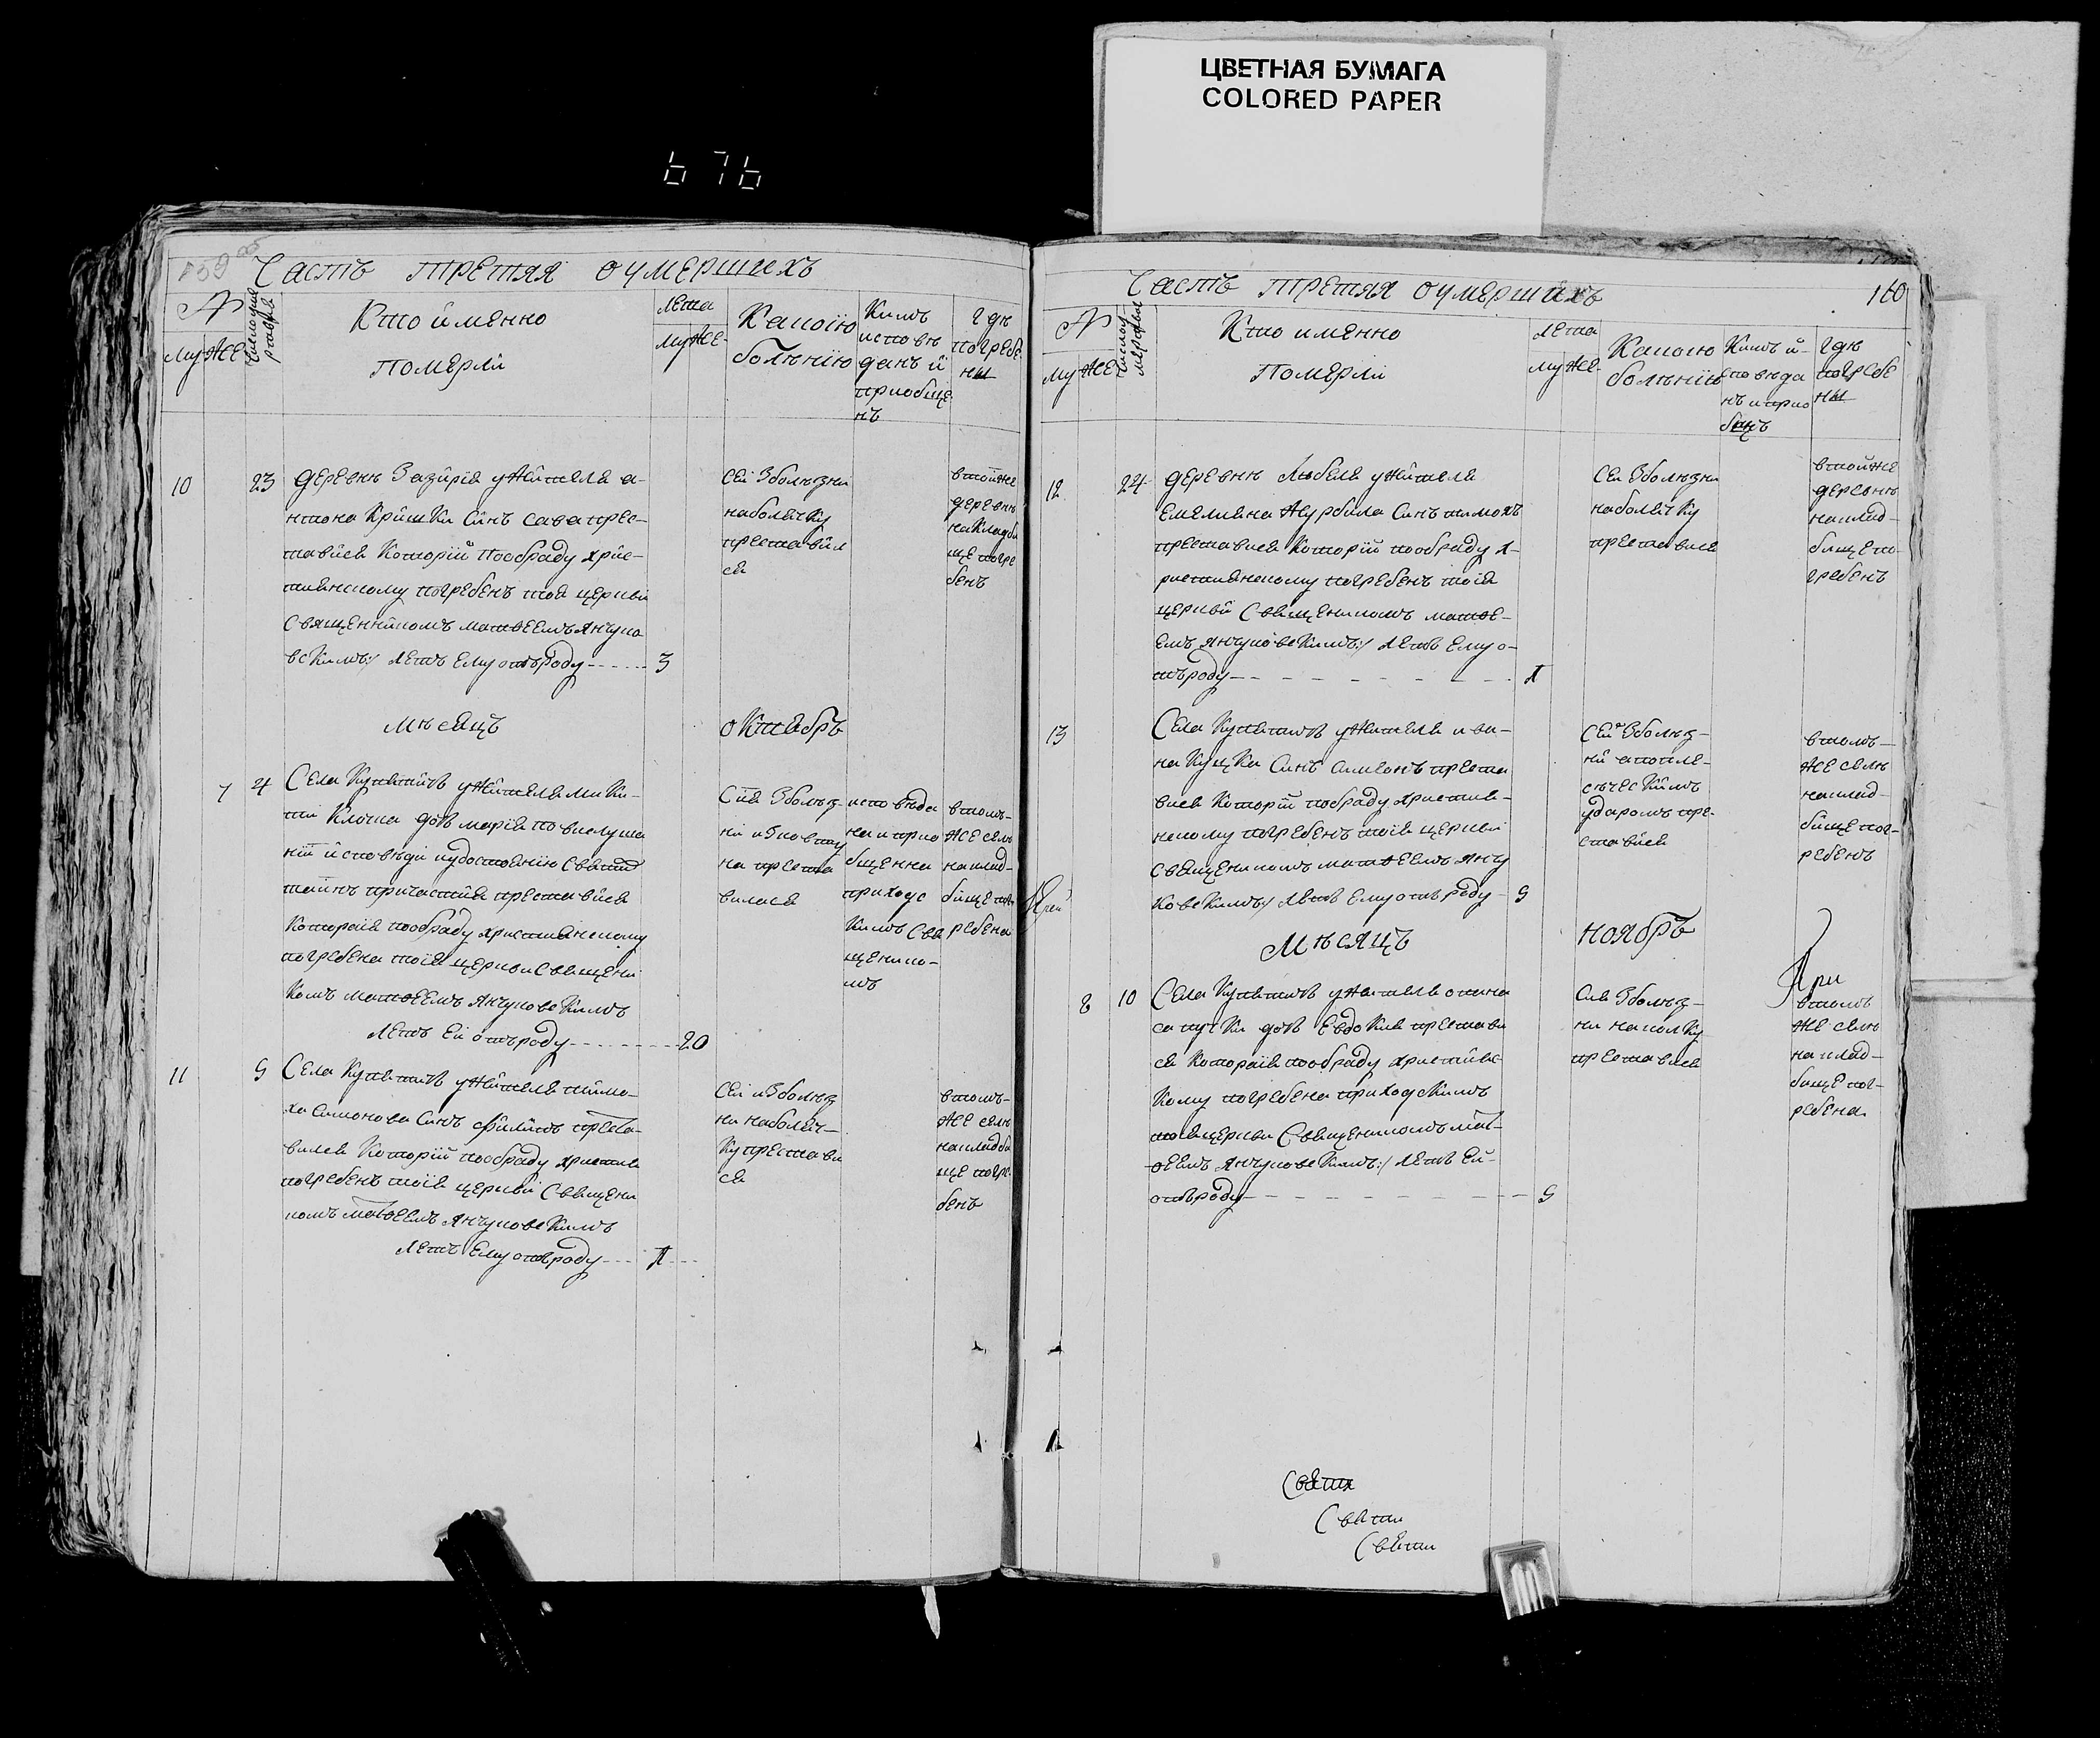 ЦВЕТНАЯ БУМАГА
COLORED PAPER
676
Часть третяя оумершихъ
№
му же
Кто йменно
померли
лета
му же
Какою
болѣнію
Кимъ
исповѣ
данъ й
приобще
нъ
гдѣ
погребе
ны
10 23 деревнѣ Зазирія ужителя а-
нтона Кришки Синъ сава прес-
тавися Которій пообряду хрис-
тиянскому погребенъ тоя церкви
Священникомъ матѳеемъ Янчуко
вскимъ:/ летъ Ему отъроду 3
Сей Зболѣзни
наболячку
преставил
ся
втойже
деревнѣ
накладби
ще погре
бенъ
Мѣсяцъ октябръ
7 4 Села Купятичъ ужителя Мики-
ти Клоча дочъ марія повислуша
ніи исповѣди иудостоенію Святихъ
тайнъ причастия преставися
Которая пообряду християнскому
погребена тоія церкви Священи
Комъ матѳеемъ Янчуковскимъ
летъ Ей отъроду 20
Сия Зболѣз-
ни
на преста
вилася
исповѣда
на и прио
бщенна
приходс
Кимъ Свя
щенико-
мъ
втомъ-
же селѣ
наклад-
бище пог
ребена
11 9 Села Купятичъ ужителя тимо-
ха Симонова Синъ Филипъ преста-
вился Которій пообряду християн
погребенъ тоія церкви Священи
комъ матѳеемъ Янчуковскимъ
летъ Ему отъроду 1
Сей изболѣз
ни наболяч-
Ку престави
ся
втомъ-
же селѣ
накладби
ще погре
бенъ
Часть третяя оумершихъ
160
№
му же
Кто именно
Померли
лета
му же
Какою
болѣнію
Кимъ й-
сповѣда
нъ и прио
бщнъ
гдѣ
погребе
ны
12 24 деревнѣ Любеля ужителя
Емелияна Журбила Синъ тимохъ
преставися Которій пообряду х-
ристиянскому погребенъ тоія
церкви Священикомъ матѳе-
емъ Янчуковскимъ:/ летъ Ему о-
търоду 1
Сей Зболѣзни
наболячку
преставися
втойже
деревнѣ
наклад-
бище по-
гребенъ
13 Села Купятичъ ужителя ива-
на Куцка Синъ Симеонъ преста
вися Которій пообряду християн-
ському погребенъ тоія церкви
Священикомъ матѳеемъ Янчу
ковскимъ:/ летъ Ему отъроду 9
Сей Зболѣз-
ни апопле-
ксическимъ
ударомъ пре-
ставися
втомъ-
же селѣ
наклад-
бище пог-
ребенъ
Мѣсяцъ ноябръ
При
8 10 Села Купятичъ ужителя
дочъ Евдокия престави
ся Которая пообряду християнс
Кому погребена приходскимъ
тояцеркви Священикомъ мат-
ѳеемъ Янчуковскимъ:/ летъ Ей-
отъроду 9
Сия Зболѣз-
ни наколку
преставися
втомъ
же селѣ
наклад-
бище пог-
ребена
Святи
Святи
Святи